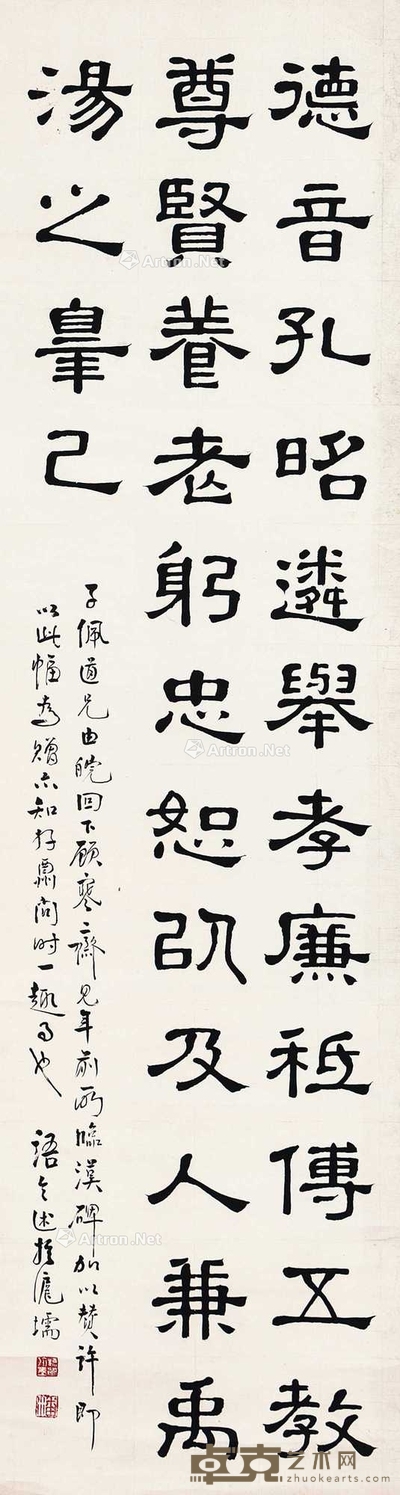 德音孔昭遴舉孝廉祗傅五教
尊賢養老躬忠恕㕥及人兼禹
湯之辠己
子佩道兄由皖回下顧寒齋見年前所臨漢碑加以贊許即
以此幅為贈亦知時一趣事也 語今述於滬壖
Artron.Net
Artron.Net
Artron.Net
Artron.Net
Artron.Net
卓克艺术网
zhuokearts.com